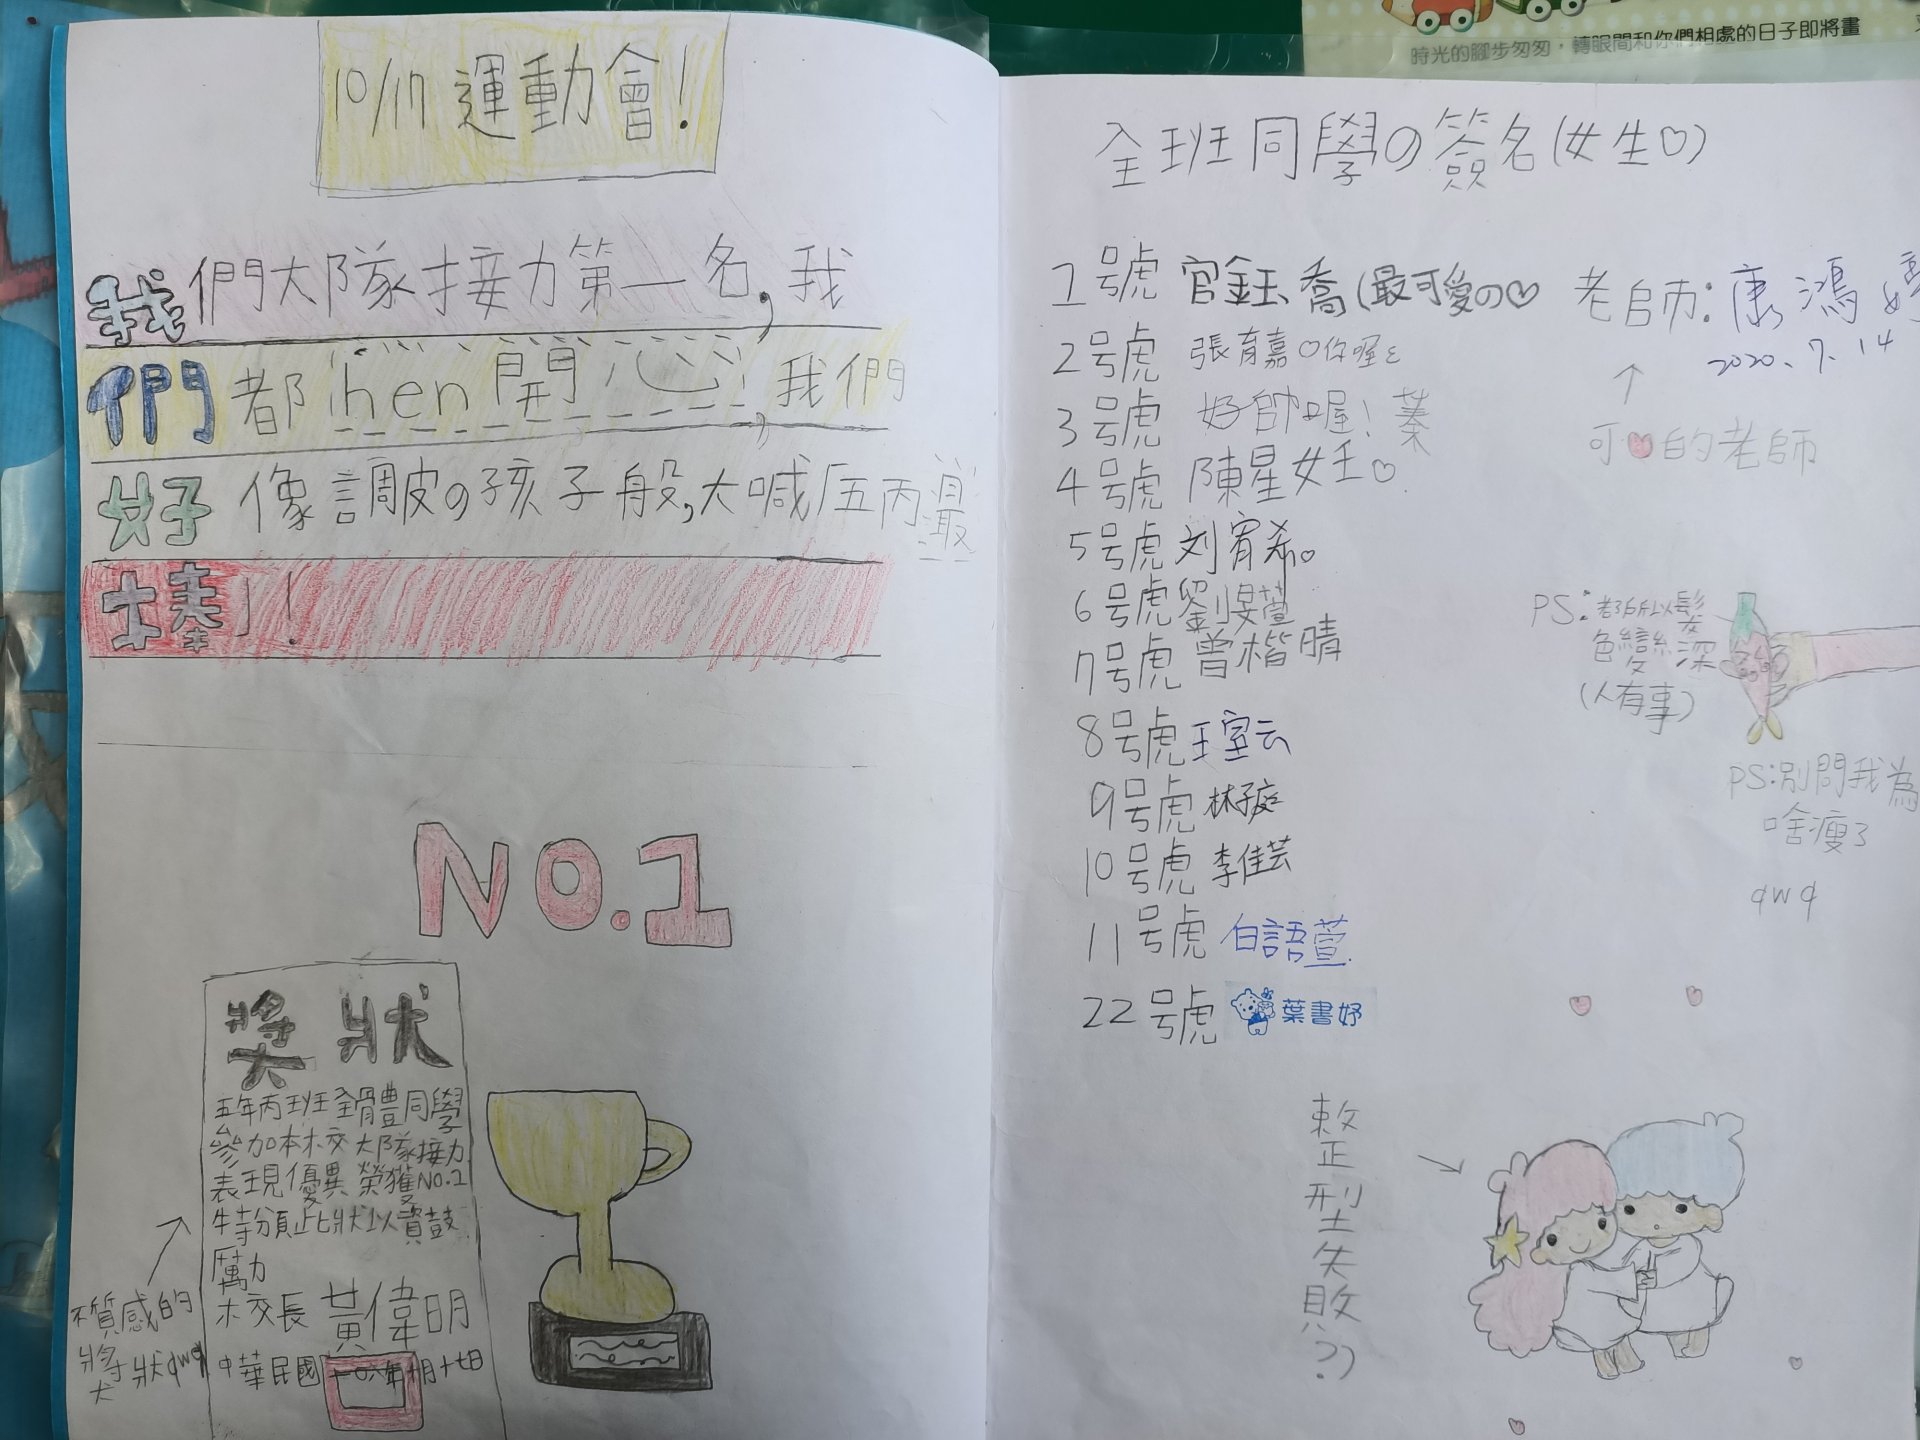 時光的腳步匆匆，轉眼間和你們相處的日子即將畫
10/17 運動會!
我們大隊接力第一名,我
們都hen開心,我們
好像調皮の孩子般,大喊「五丙最
棒」!
NO.1
獎狀
五年丙班全體同學
參加本校大隊接力
表現優異榮獲NO.1
特頒此狀以資鼓
厲力
校長 黃偉明
中華民國一〇六年十月十七日
不質感的
獎狀qwq
全班同學の簽名(女生♡)
1号虎 官鈺喬(最可愛の♡
2号虎 張育嘉♡你喔ε
3号虎 好帥喔! 蓁
4号虎 陳星女王♡
5号虎 刘宥希♡
6号虎 劉旻萱
7号虎 曾楷晴
8号虎 王室云
9号虎 林子庭
10号虎 李佳芸
11号虎 白語萱
22号虎 葉書妤
老師:康鴻
2020.7.14
可♡的老師
PS:老了所以髮
色變深
(人有事)
PS:別問我為
啥瘦了
qwq
整型失敗?)